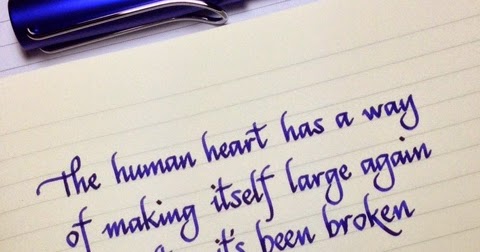 The human heart has a way
of making itself large again
it's been broken